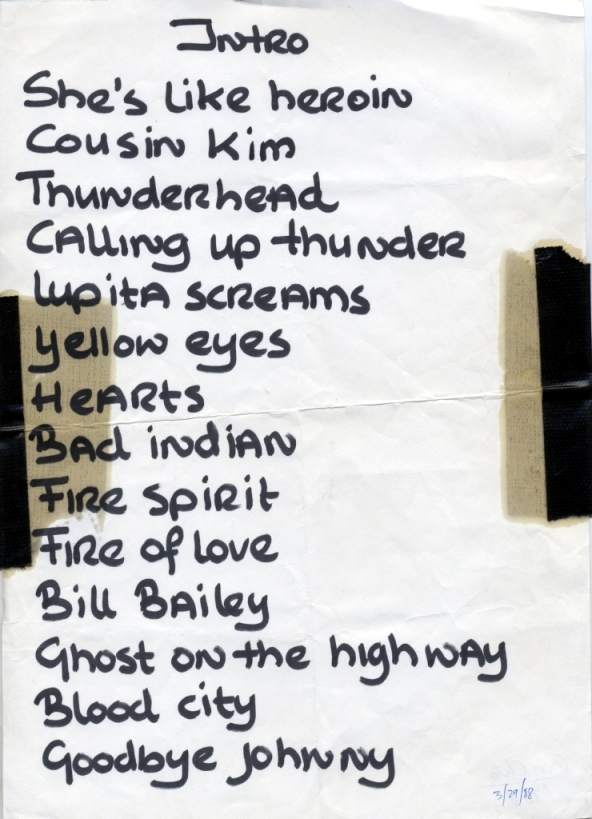 Intro
She's like heroin
Cousin Kim
Thunderhead
Calling up thunder
Lupita screams
yellow eyes
Hearts
Bad indian
Fire spirit
Fire of love
Bill Bailey
Ghost on the highway
Blood city
Goodbye Johnny
3/29/88